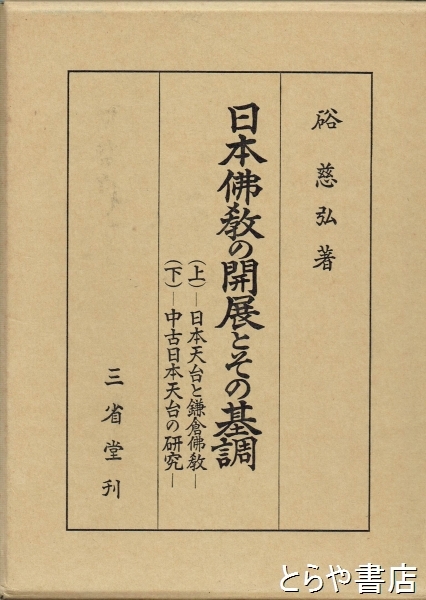 硲慈弘著
日本佛教の開展とその基調
(上)―日本天台と鎌倉佛教―
(下)―中古日本天台の研究―
三省堂刊
とらや書店